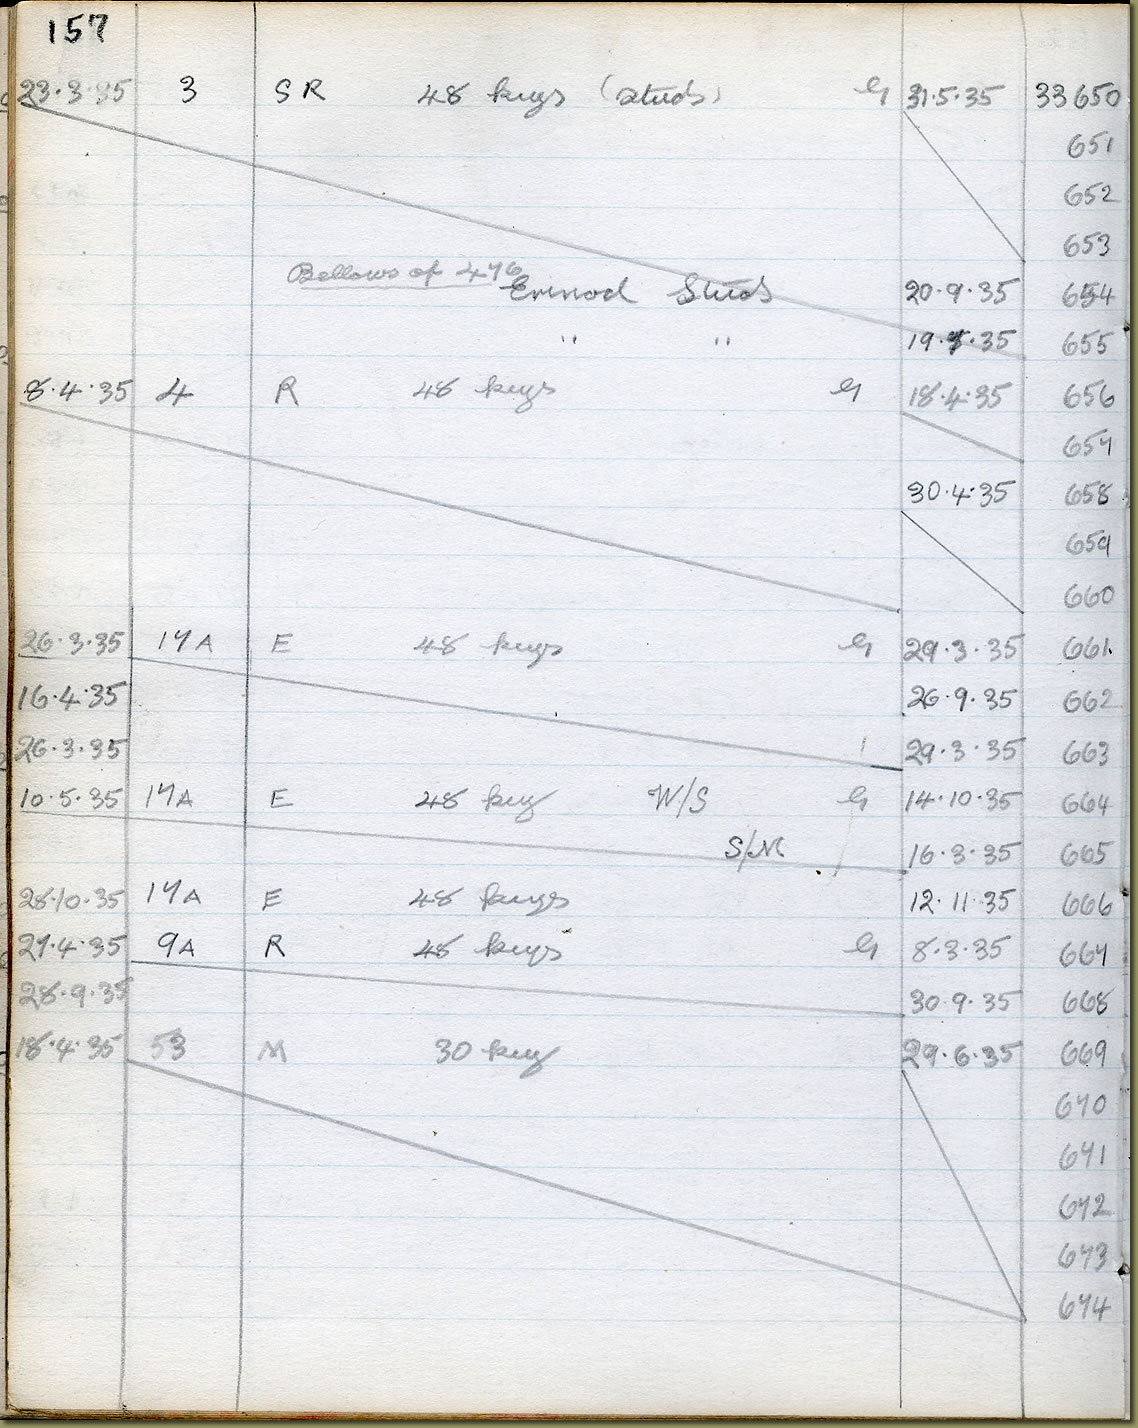 157
23·3·35 3 SR 48 keys (studs) G 31·5·35 33650
651
652
653
Bellows of 476
Ermod Studs 20·9·35 654
" " 19· ·35 655
8·4·35 4 R 48 keys G 18·4·35 656
657
30·4·35 658
659
660
26·3·35 17A E 48 keys G 29·3·35 661
16·4·35 26·9·35 662
26·3·35 29·3·35 663
10·5·35 17A E 48 key W/S G 14·10·35 664
S/M 16·3·35 665
28·10·35 17A E 48 keys 12·11·35 666
27·4·35 9A R 48 keys G 8·3·35 667
28·9·35 30·9·35 668
18·4·35 53 M 30 key 29·6·35 669
670
671
672
673
674